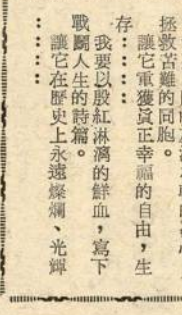 拯救苦難的同胞。
讓它重獲眞正幸福的自由，生
存⋯⋯
我要以殷紅淋漓的鮮血，寫下
戰鬪人生的詩篇。
讓它在歷史上永遠燦爛、光輝
⋯⋯